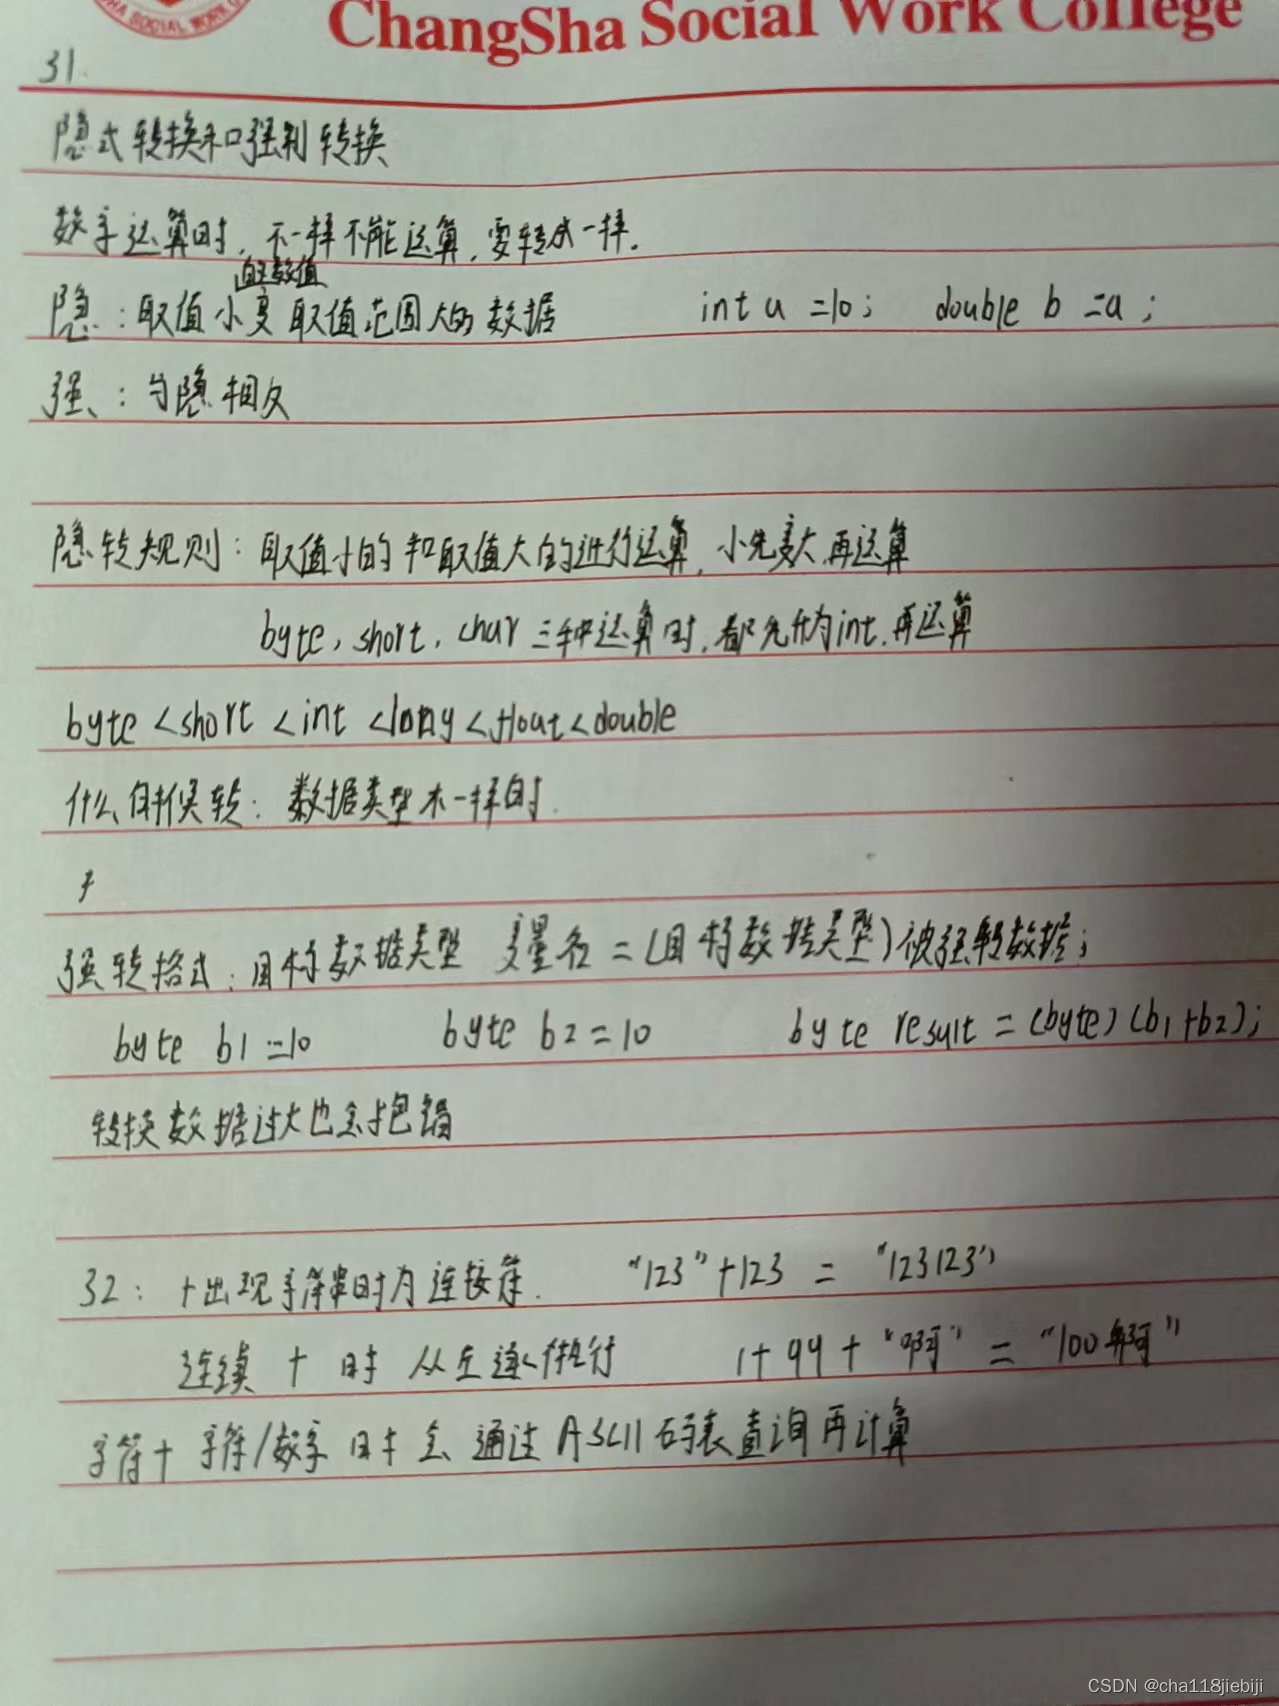 ChangSha Social Work College
31.
隐式转换和强制转换
数字运算时，不一样不能运算，要转成一样。
的数值
隐：取值小变取值范围大的数据 int a =10； double b =a；
强：与隐相反
隐转规则：取值小的和取值大的进行运算，小先变大，再运算
byte，short，char三种运算时，都先升为int，再运算
byte <short <int <long <float <double
什么时候转：数据类型不一样时.
强转格式：目标数据类型 变量名 =（目标数据类型）被强转数据；
byte b1 =10 byte b2 =10 byte result =（byte）（b1+b2）；
转换数据过大也会报错
32：+出现字符串时为连接符. "123"+123 = "123123"
连续 + 时 从左逐个执行 1+99+"啊" = "100啊"
字符+字符/数字 时 会 通过ASCII码表查询再计算
CSDN @cha118jiebiji